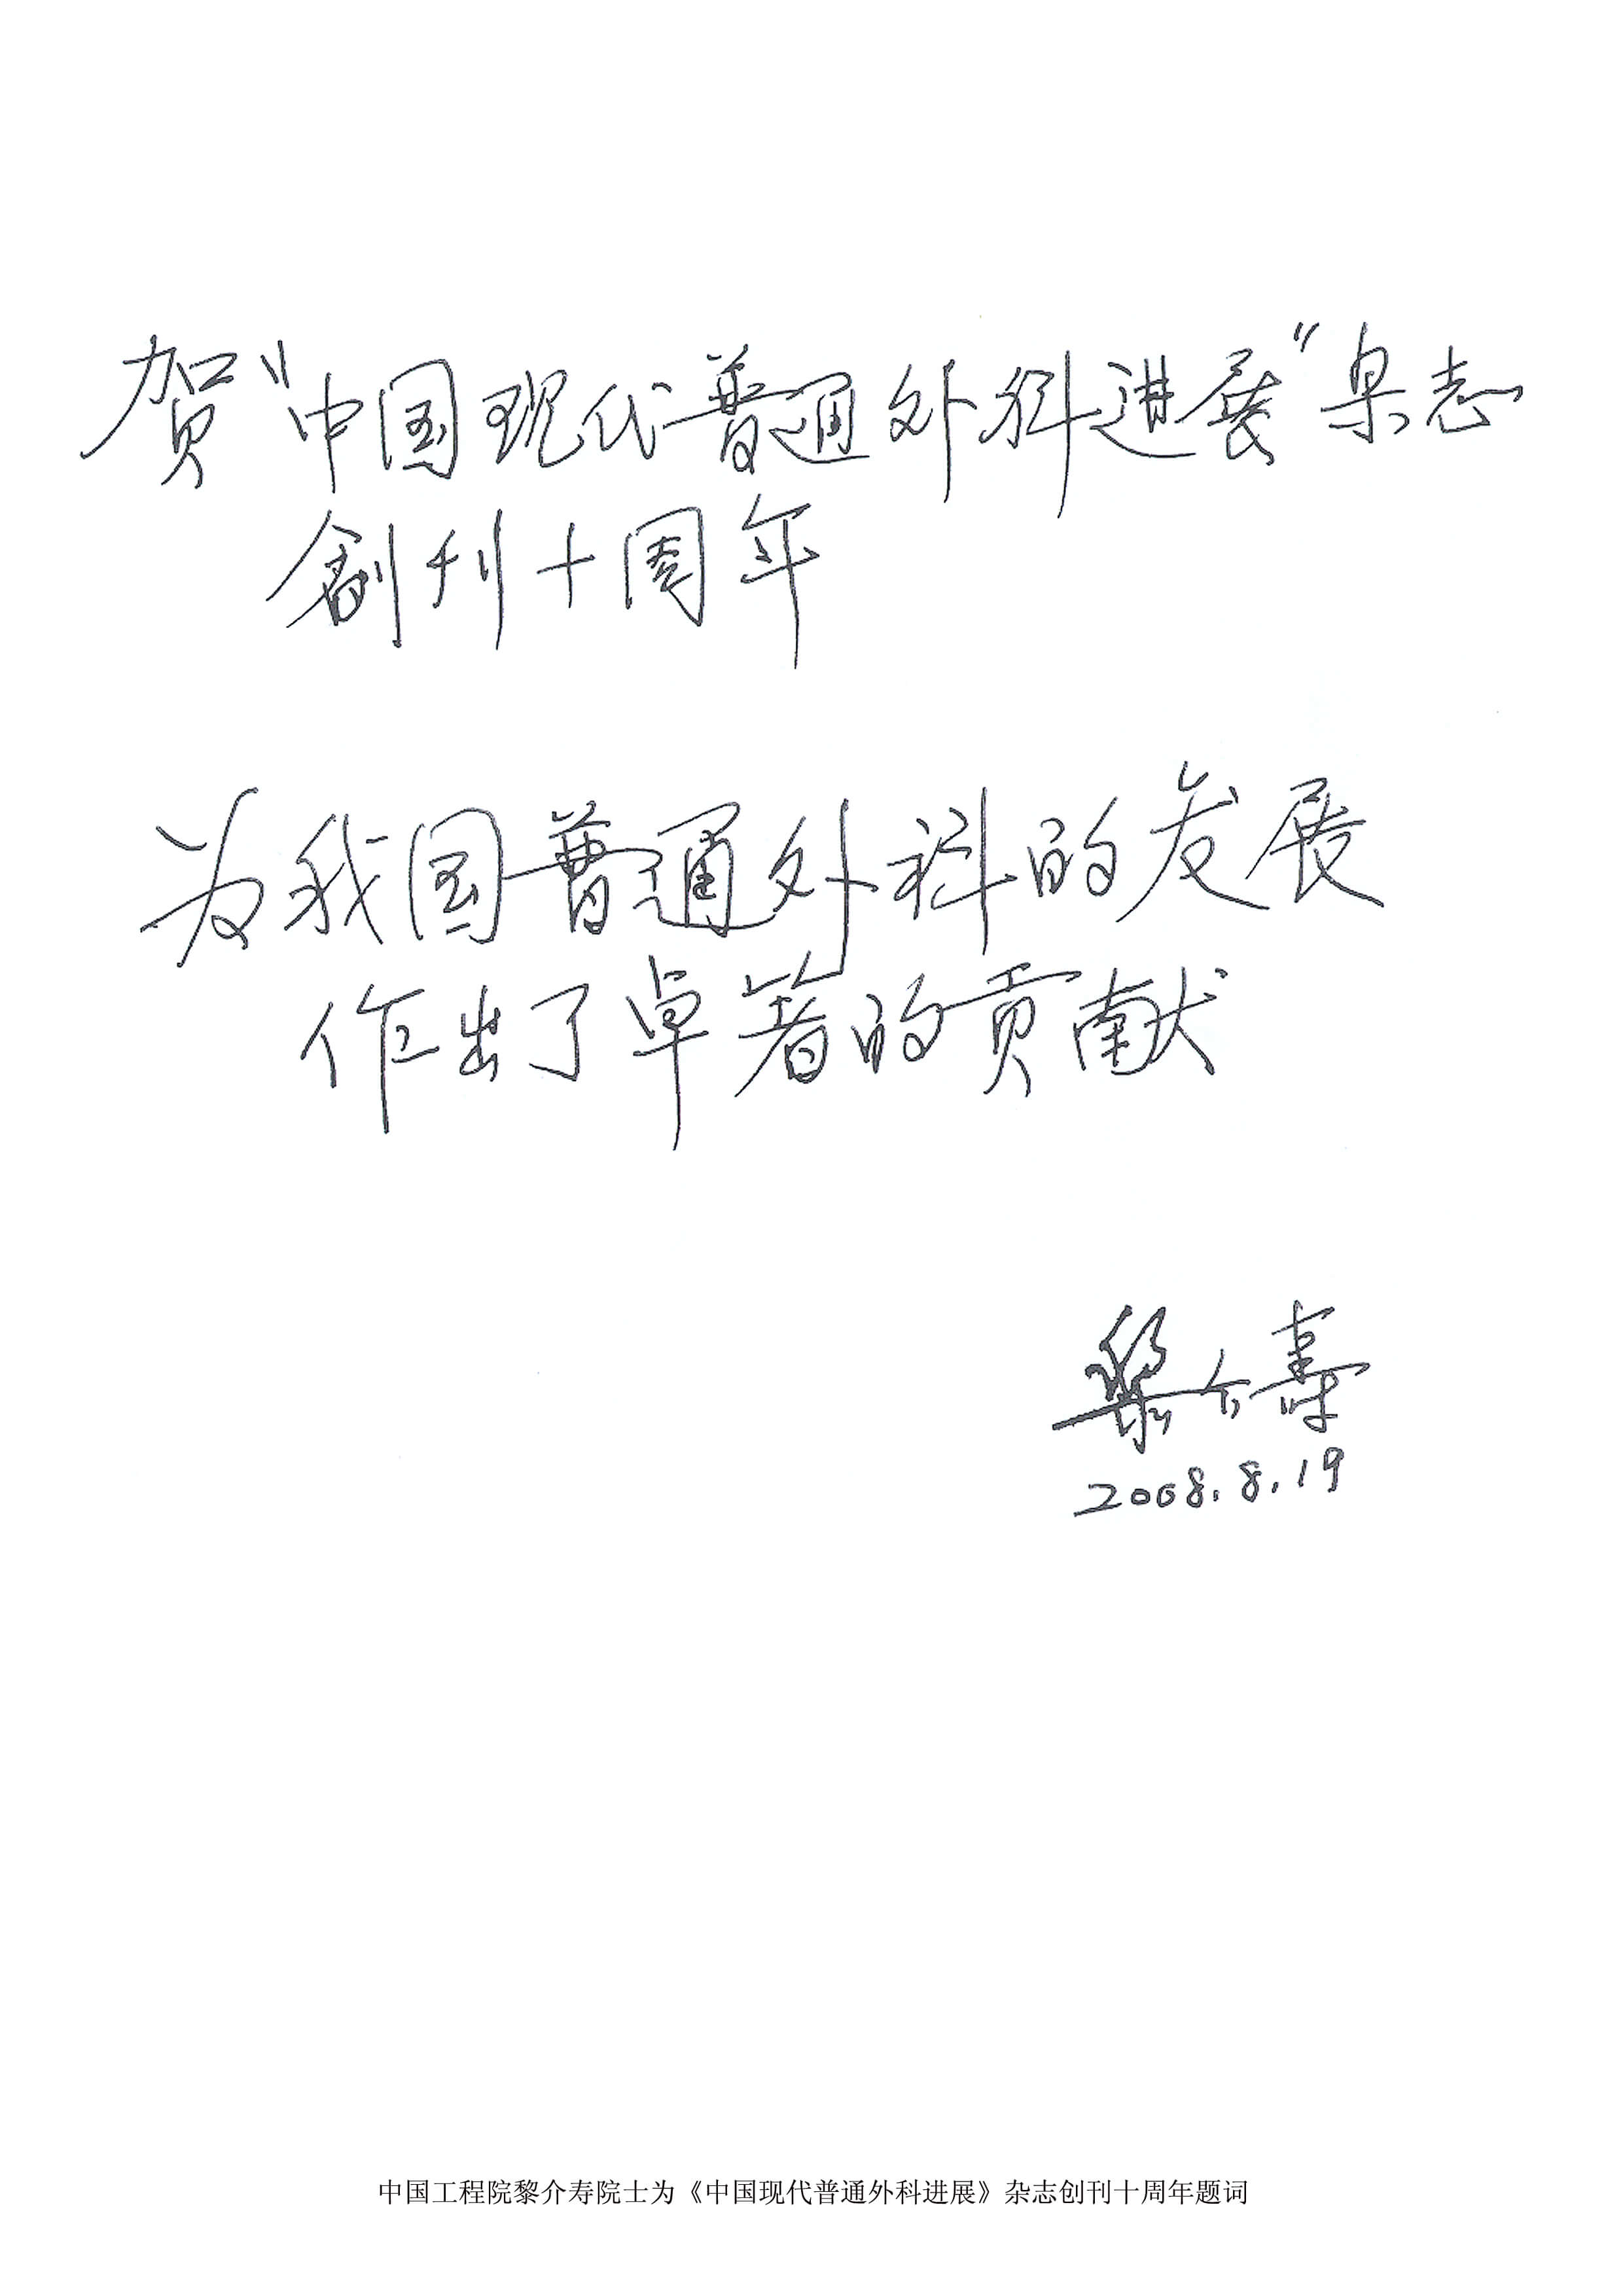 贺"中国现代普通外科进展"杂志
創刊十周年
为我国普通外科的发展
作出了卓著的贡献
黎介壽
2008.8.19
中国工程院黎介寿院士为《中国现代普通外科进展》杂志创刊十周年题词